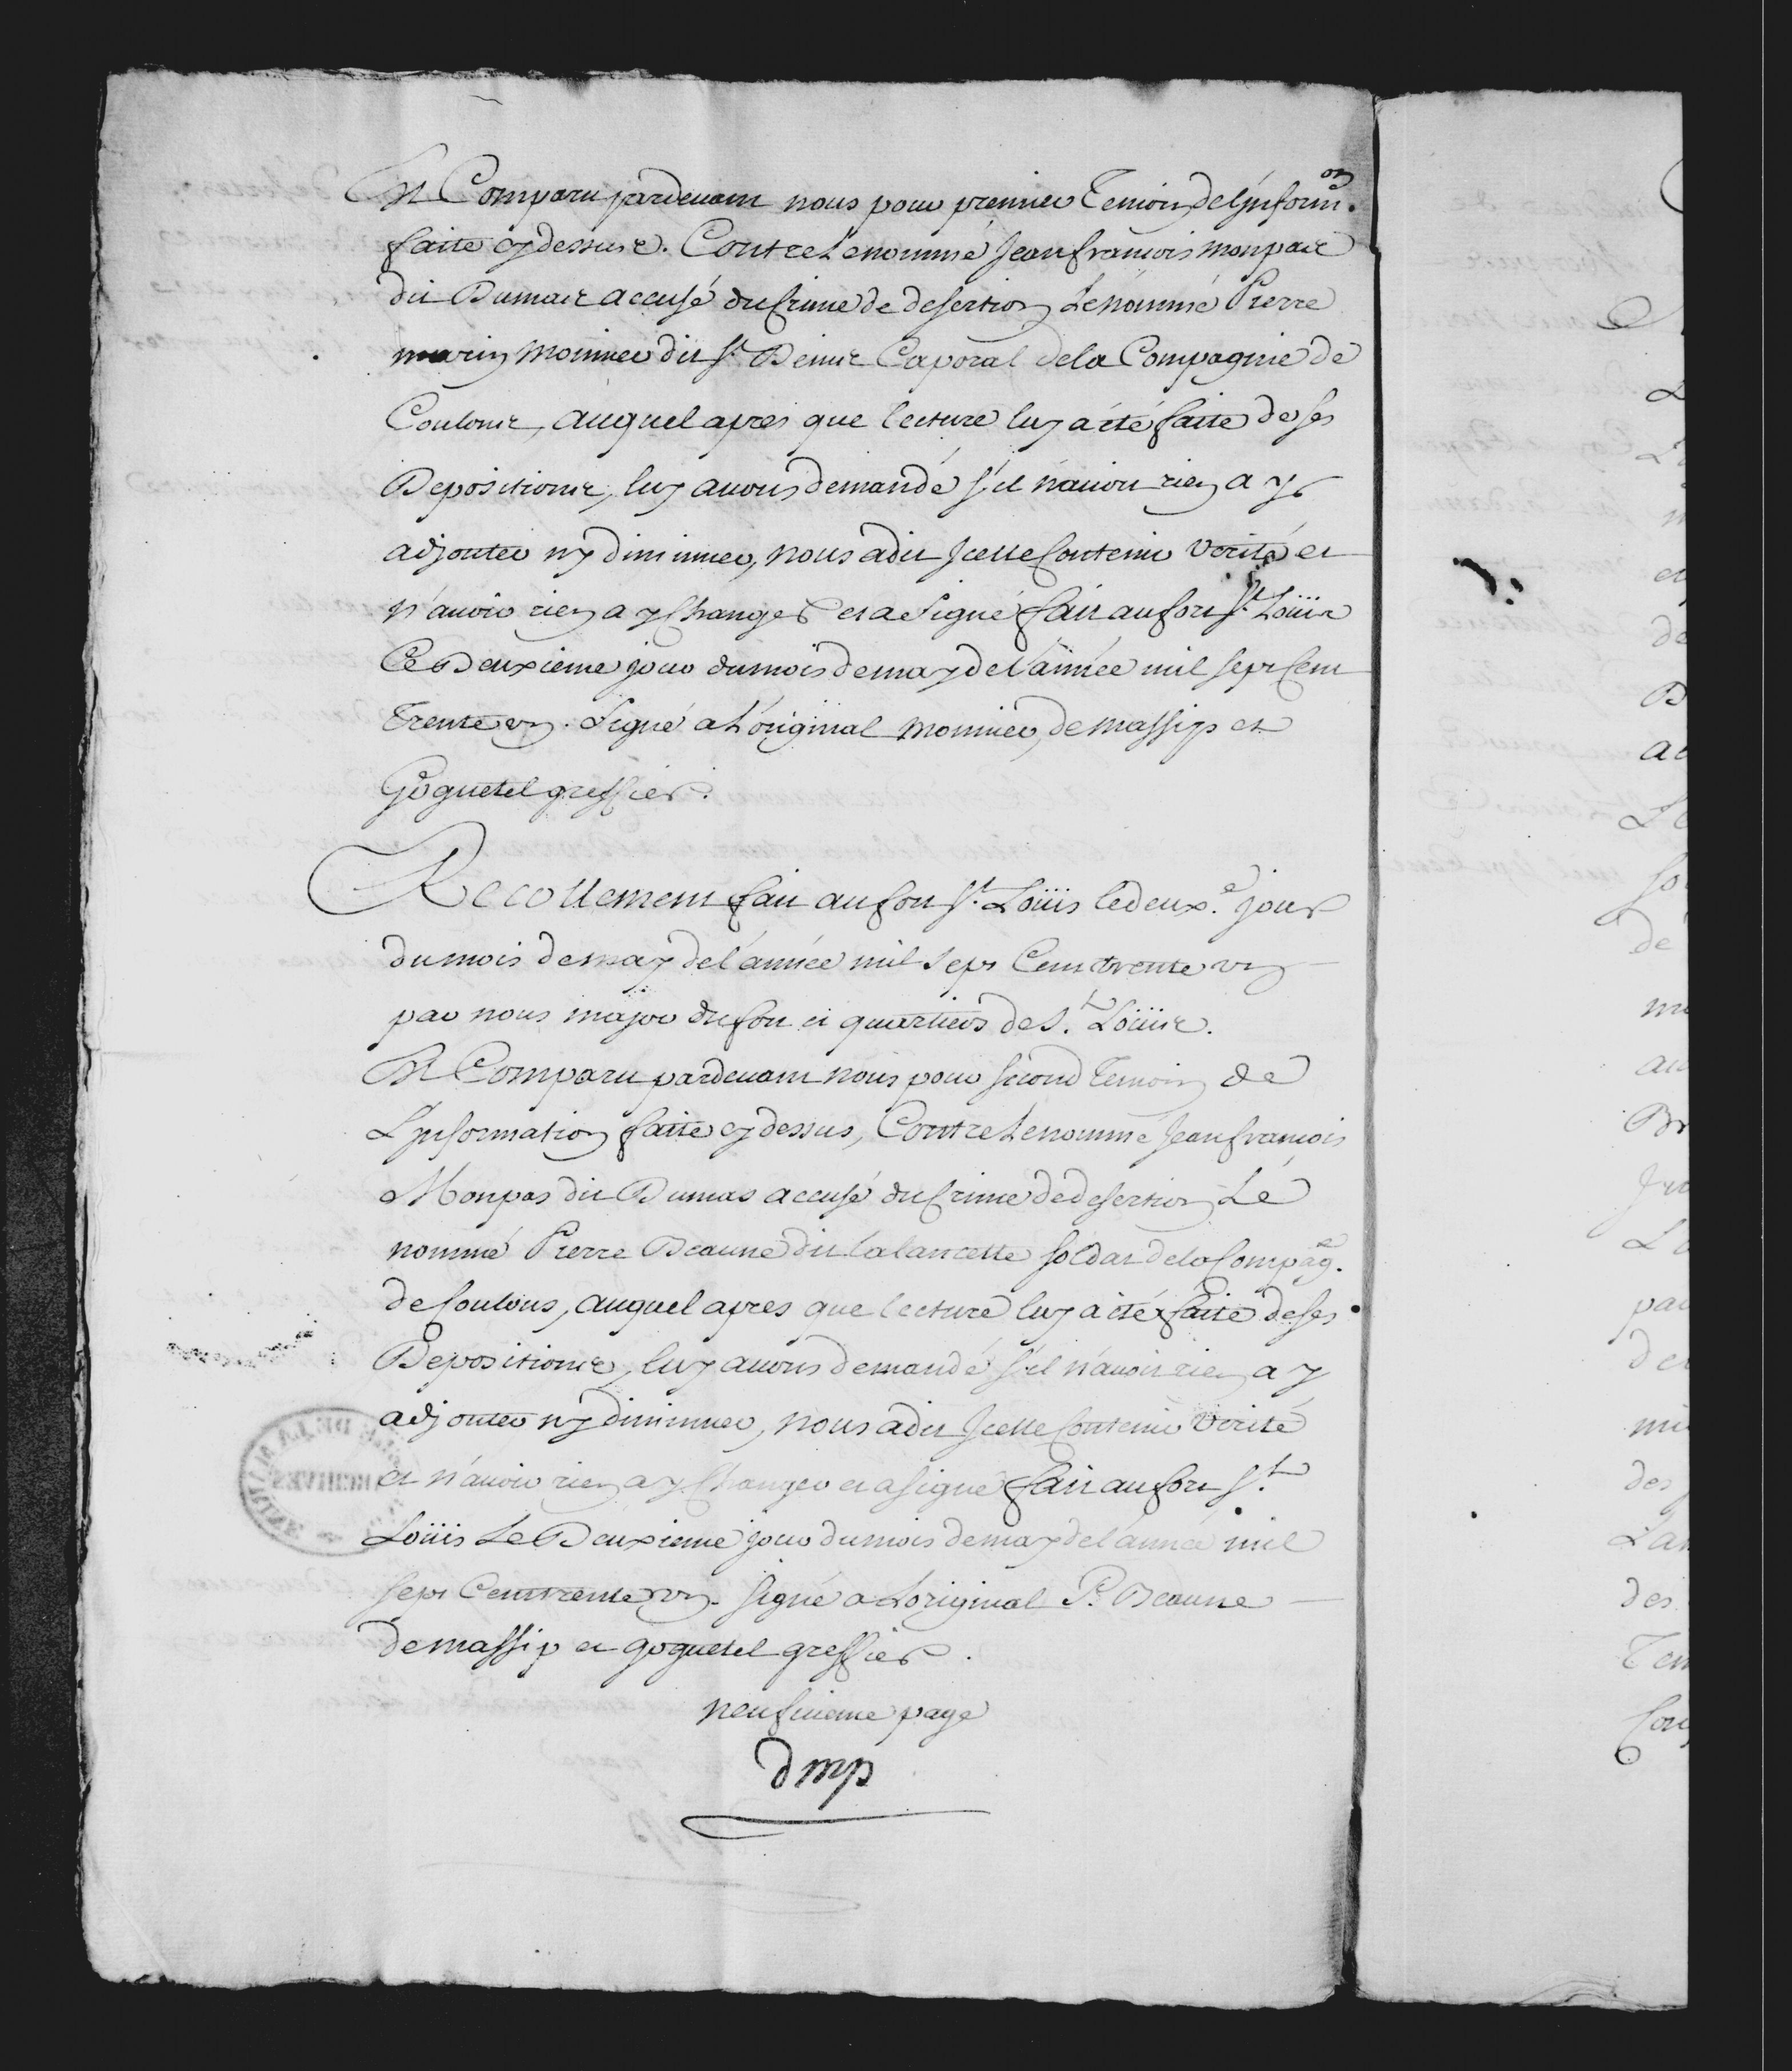 Est Comparu pardevant nous pour premier Temoin de Lynform.on
faitte cy dessus. Contre Lenommé Jean francois monpas
dit Dumas accusé du Crime de desertion Lenommé Pierre
marin monnier dit St. Denis Caporal dela Compagnie de
Coulons, auquel apres que lecture luy a été faitte de ses
Depositions, luy avons demandé s'il n'avoit rien a y
adjouter ny diminuer, nous a dit Jcelle Contenir verité et
n'avoir rien a y Changer et a Signé fait au fort St. Loüis
Ce Deuxieme jour du mois de may de l'année mil sept Cent
Trente un. Signé a L'original monnier, de massip et
Goguetel greffier.
Recollement fait au fort St. Loüis le deux.e jour
du mois de may de l'année mil sept Cent trente un
par nous major du fort et quartiers de St. Loüis.
Est Comparu pardevant nous pour second Temoin de
Lynformation faitte cy dessus, Contre Lenommé Jean francois
Monpas dit Dumas accusé du Crime de desertion Le
nommé Pierre Beaune dit lalancette soldat dela Compag.e
de Coulons, auquel apres que lecture luy a été faite de ses
Depositions, luy avons demandé s'il n'avoit rien a y
adjouter ny diminuer, nous a dit Jcelle Contenir verité
et n'avoir rien a y Changer et a signé fait au fort St.
Loüis Le Deuxieme jour du mois de may de l'année mil
sept Cent trente un. signé a Loriginal P. Beaune
de massip et goguetel greffier.
neufvieme page
dmp